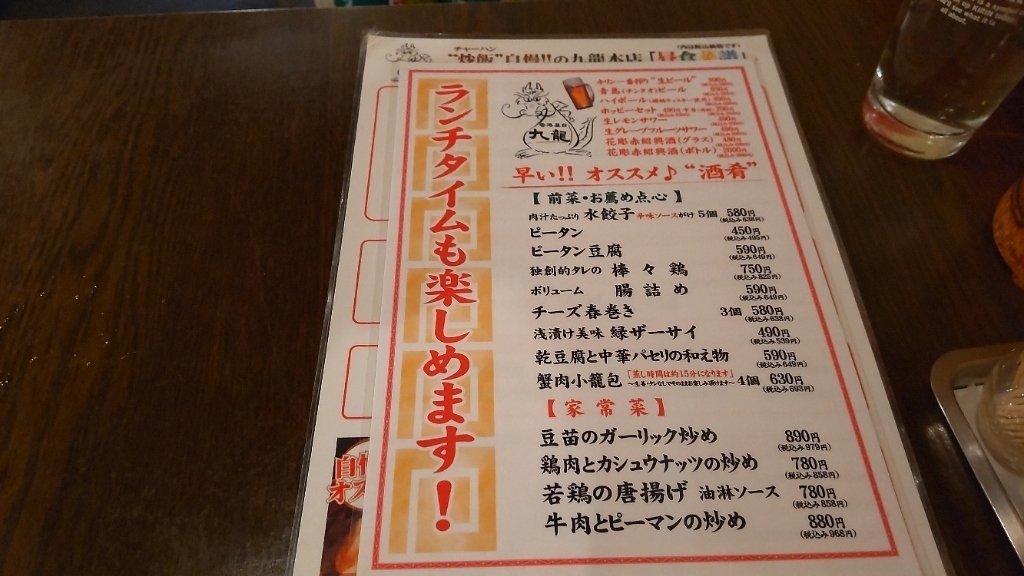 チャーハン
"炒飯"自慢!!の九龍本店「昼食菜譜」
ランチタイムも楽しめます!
九龍
キリン一番搾り "生ビール"
青島(チンタオ)ビール
ハイボール
ホッピーセット
生レモンサワー
生グレープフルーツサワー
花彫赤紹興酒(グラス)
花彫赤紹興酒(ボトル)
早い!! オススメ♪ "酒肴"
【前菜・お薦め点心】
肉汁たっぷり 水餃子 辛味ソースがけ 5個 580円 (税込み638円)
ピータン 450円 (税込み495円)
ピータン豆腐 590円 (税込み649円)
独創的タレの 棒々鶏 750円 (税込み825円)
ボリューム 腸詰め 590円 (税込み649円)
チーズ春巻き 3個 580円 (税込み638円)
浅漬け美味 緑ザーサイ 490円 (税込み539円)
乾豆腐と中華パセリの和え物 590円 (税込み649円)
蟹肉小籠包 「蒸し時間は約15分になります」 4個 630円 (税込み693円)
【家常菜】
豆苗のガーリック炒め 890円 (税込み979円)
鶏肉とカシュウナッツの炒め 780円 (税込み858円)
若鶏の唐揚げ 油淋ソース 780円 (税込み858円)
牛肉とピーマンの炒め 880円 (税込み968円)